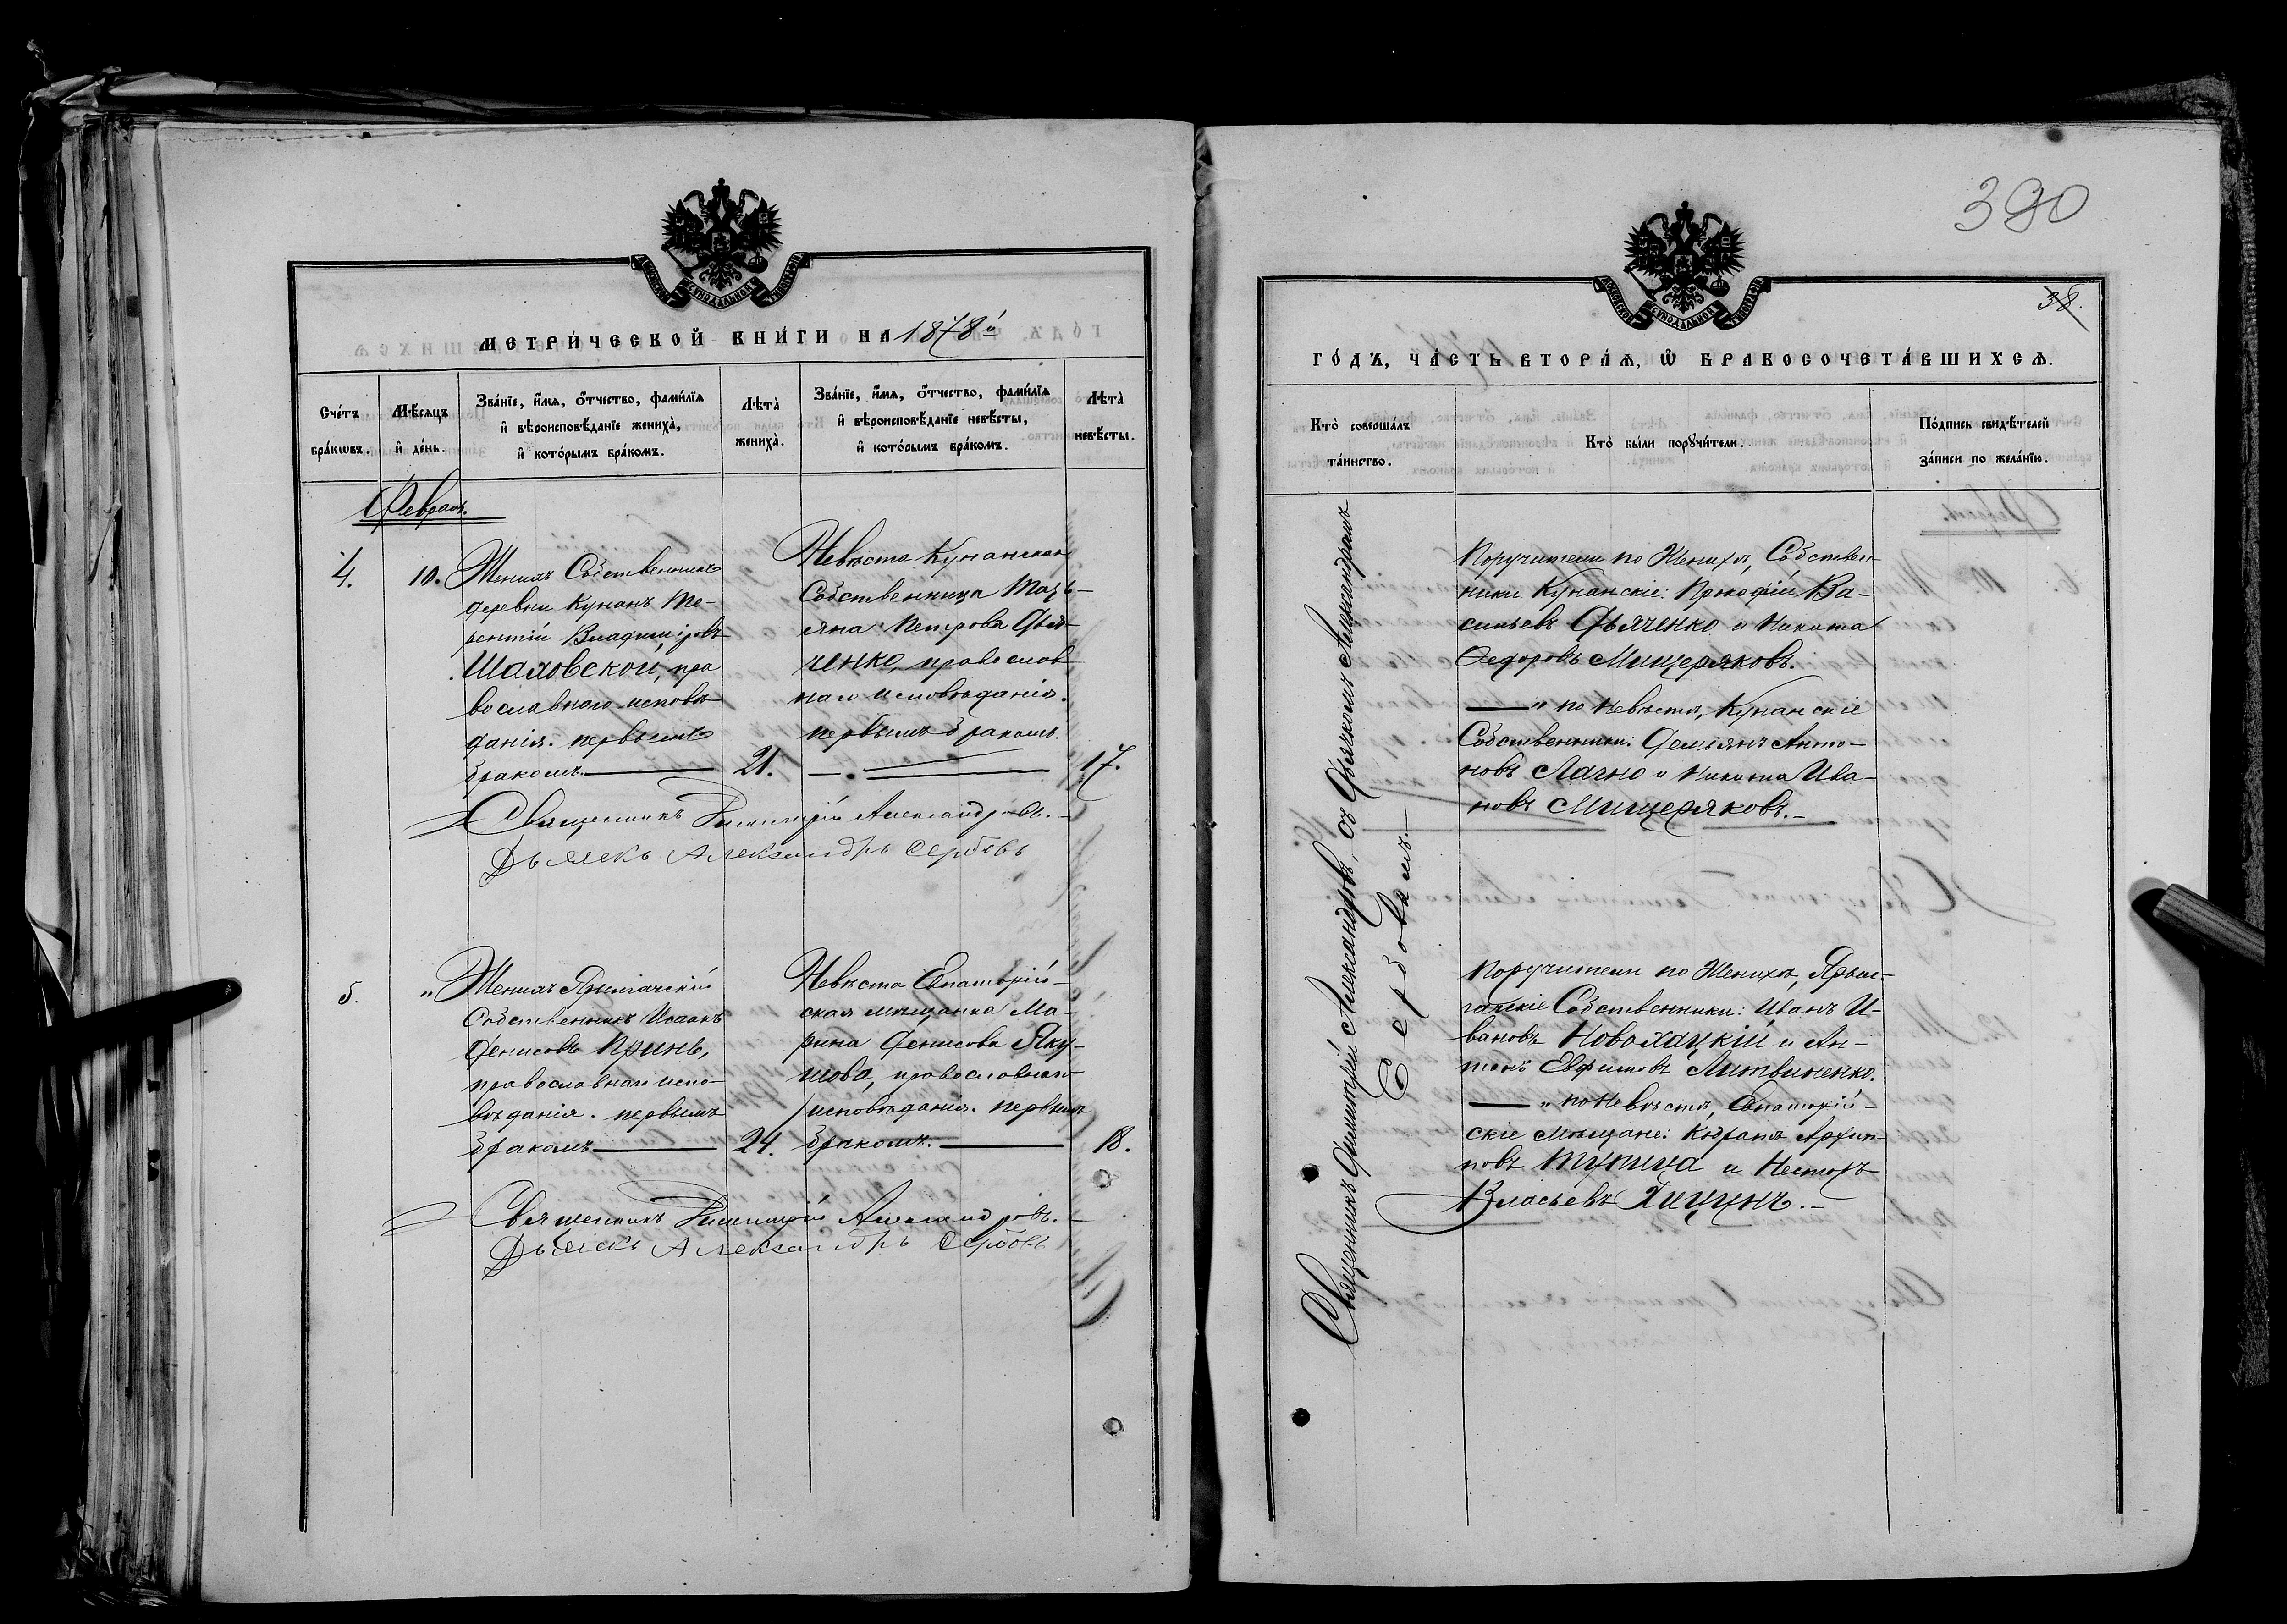 МЕТРИ́ЧЕСКОЙ КНИ́ГИ НА 1878й
Сче́тъ бра́кѡвъ.
Мѣ́сѧцъ и҆ де́нь.
Зва́нїе, и҆́мѧ, ѻ҆́тчество, фами́лїѧ и҆ вѣроисповѣ́данїе жениха̀, и҆ кото́рымъ бра́комъ.
Лѣта̀ жениха̀.
Зва́нїе, и҆́мѧ, ѻ҆́тчество, фами́лїѧ и҆ вѣроисповѣ́данїе невѣ́сты, и҆ кото́рымъ бра́комъ.
Лѣта̀ невѣ́сты.
Февраль.
4.
10.
Женихъ Собственникъ
деревни Кунанъ Те-
рентій Владиміровъ
Шаховской, пра
вославного исповѣ
данія. первымъ
бракомъ.
21.
Невѣста Кунанская
Собственница Тать-
яна Петрова Дья-
ченко, православ
наго исповѣданія.
первымъ бракомъ.
17.
Священникъ Димитрій Александровъ.
Дьячекъ Александръ Сербовъ
5.
"
Женихъ Ярылгачскій
Собственникъ Исаакъ
Денисовъ Принь,
православнаго испо-
вѣданія. первымъ
бракомъ
24.
Невѣста Евпаторій-
ская мѣщанка Ма-
рина Денисова Яку-
шова, православнаго
исповѣданія. первымъ
бракомъ.
18.
Священникъ Димитрій Александровъ.
Дьячекъ Александръ Сербовъ
390
38.
ГО́ДЪ, ЧА́СТЬ ВТОРА́Ѧ, Ѡ҆ БРАКОСОЧЕТА́ВШИХСѦ.
Кто̀ соверша́лъ та́инство.
Кто̀ бы́ли порꙋчи́тели.
По́дпись свидѣ́телей за́писи по жела́нїю.
Священникъ Димитрій Александровъ, съ Дьячкомъ Александромъ
Сербовымъ.
Поручители по Женихѣ, Собствен-
ники Кунанскіе: Прокофій Ва-
сильевъ Дьяченко и Никита
Федоровъ Мищеряковъ.
" по невѣстѣ, Кунанскіе
Собственники: Демьянъ Анто-
новъ Лачно и Никита Ива-
новъ Мищеряковъ.
Поручители по Женихѣ, Ярыл-
гачскіе Собственники: Иванъ И-
вановъ Новохацкій и Ан-
тонъ Евфимовъ Литвиненко.
" по Невѣстѣ, Евпаторій-
скіе мѣщане: Кодратъ Архип-
повъ Тупица и Несторъ
Власьевъ Гицунъ.